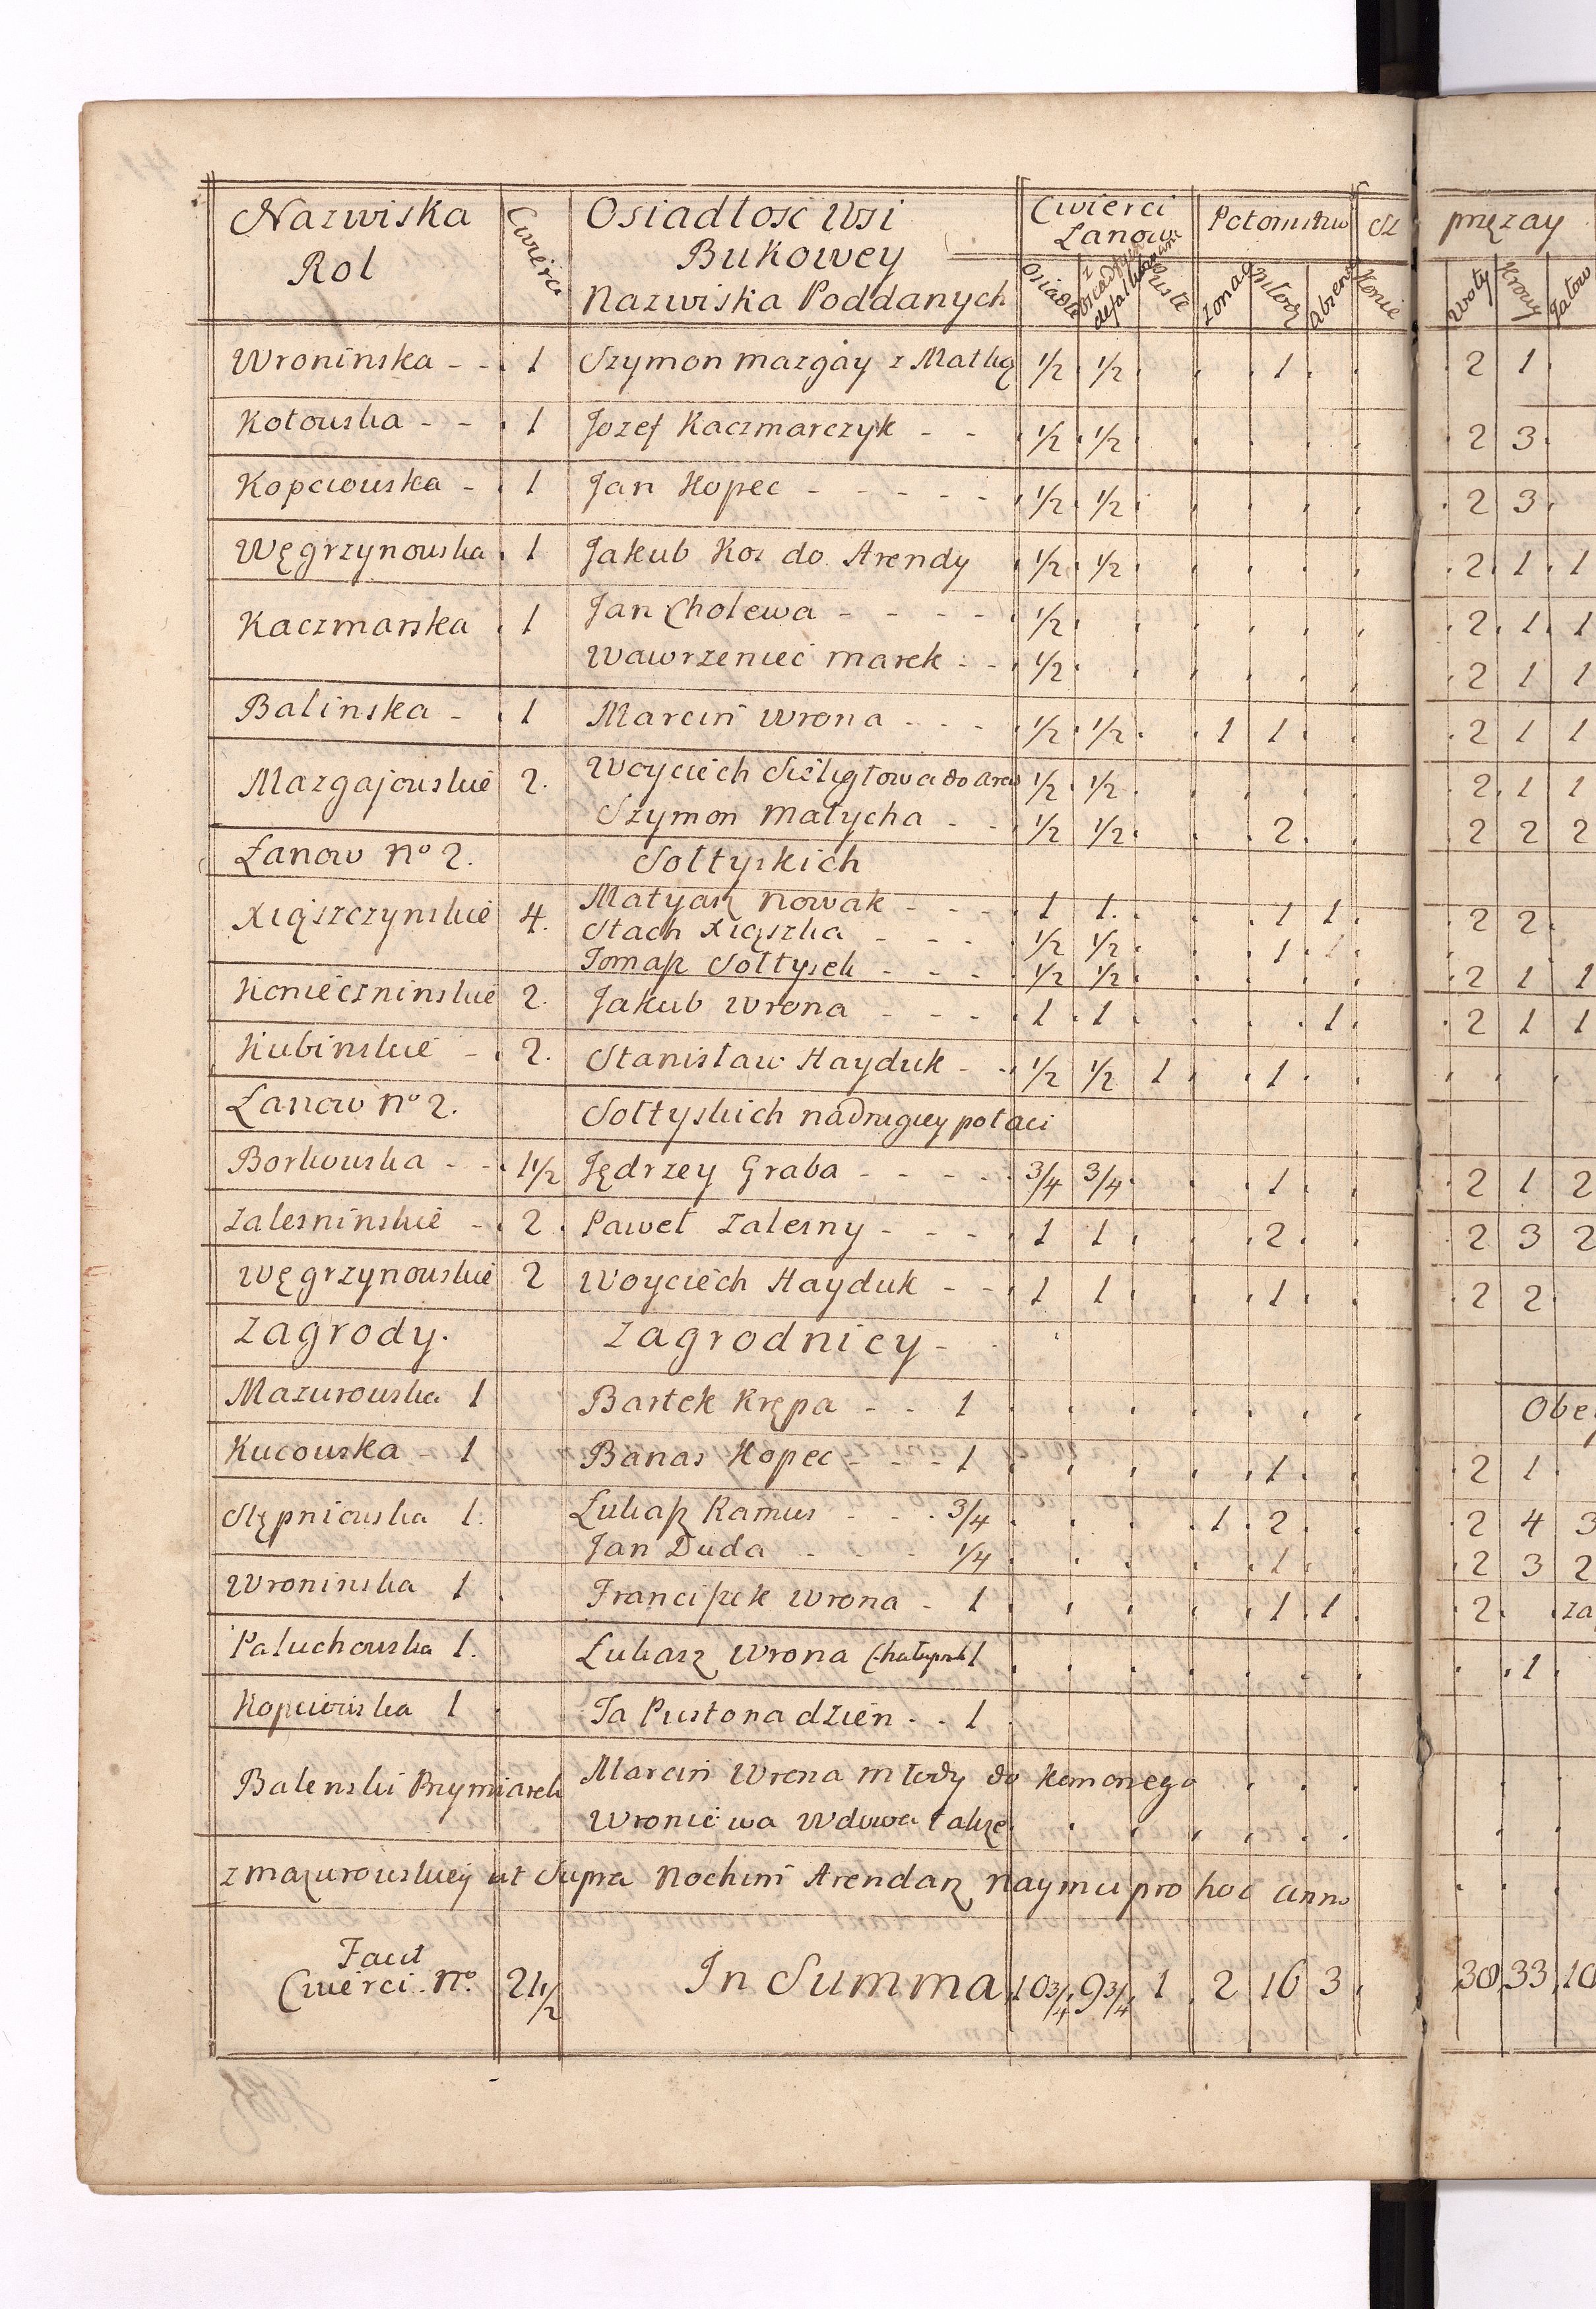 Nazwiska Rol Cwierci Osiadłosc Wsi Bukowey Nazwiska Poddanych Cwierci Łanow Potomstwo przęzay
Osiadłe z Puste żonat Młodz Konie Woły Krowy Jałow
Wroninska - - 1 Szymon Mazgay z Matką 1/2 1/2 1 2 1
Kotowska - - 1 Jozef Kaczmarczyk - - 1/2 1/2 2 3
Kopciowska - 1 Jan Kopec - - - - - 1/2 1/2 2 3
Węgrzynowska 1 Jakub Kos do Arendy 1/2 1/2 2 1 1
Kaczmarska 1 Jan Cholewa - - - - 1/2 2 1 1
Wawrzeniec Marek - - 1/2 2 1 1
Balinska - 1 Marcin Wrona - - - 1/2 1/2 1 1 2 1 1
Mazgajowskie 2. Woyciech do 1/2 1/2 2 1 1
Szymon Małycha - - 1/2 1/2 2 2 2 2
Łanow No 2. Sołtyskich
Xiąszczynskie 4. Matyasz Nowak - - - 1 1 1 1 2 2
Stach Xiąszka - - - 1/2 1/2 1
Tomasz Sołtysek - - - 1/2 1/2 2 1 1
Konieczninskie 2. Jakub Wrona - - - 1 1 1 2 1 1
Kubinskie - 2. Stanisław Hayduk - - 1/2 1/2 1 1
Łanow No 2. Sołtyskich na drugiey połaci
Borkowska - - 1 1/2 Jędrzey Graba - - - - 3/4 3/4 1 2 1 2
Zalesninskie - 2 Paweł Zalesny - - - - 1 1 2 2 3 2
Węgrzynowskie 2 Woyciech Hayduk - - 1 1 1 2 2
Zagrody. Zagrodnicy -
Mazurowska 1 Bartek Krępa - - 1
Kucowska - 1 Banas Kopec - - - 1 1 2 1
Stępniowska 1. Łukasz Kamus - - 3/4 1 2 2 4 3
Jan Duda - - - 1/4 1 2 3 2
Wroninska 1 Franciszek Wrona - 1 1 1 2
Paluchowska 1. Łukasz Wrona 1 1
Kopciowska 1 Ta Pusto na dzien - - 1
Balenski Przymiarek Marcin Wrona Młody do Komornego
Wroniewa Wdowa takze
z Mazurowskiey ut Supra Nochim Arendarz Naymu pro hoc anno
Facit
Cwierci No. 21 1/2 In Summa 10 3/4 9 3/4 1 2 16 3 30 33